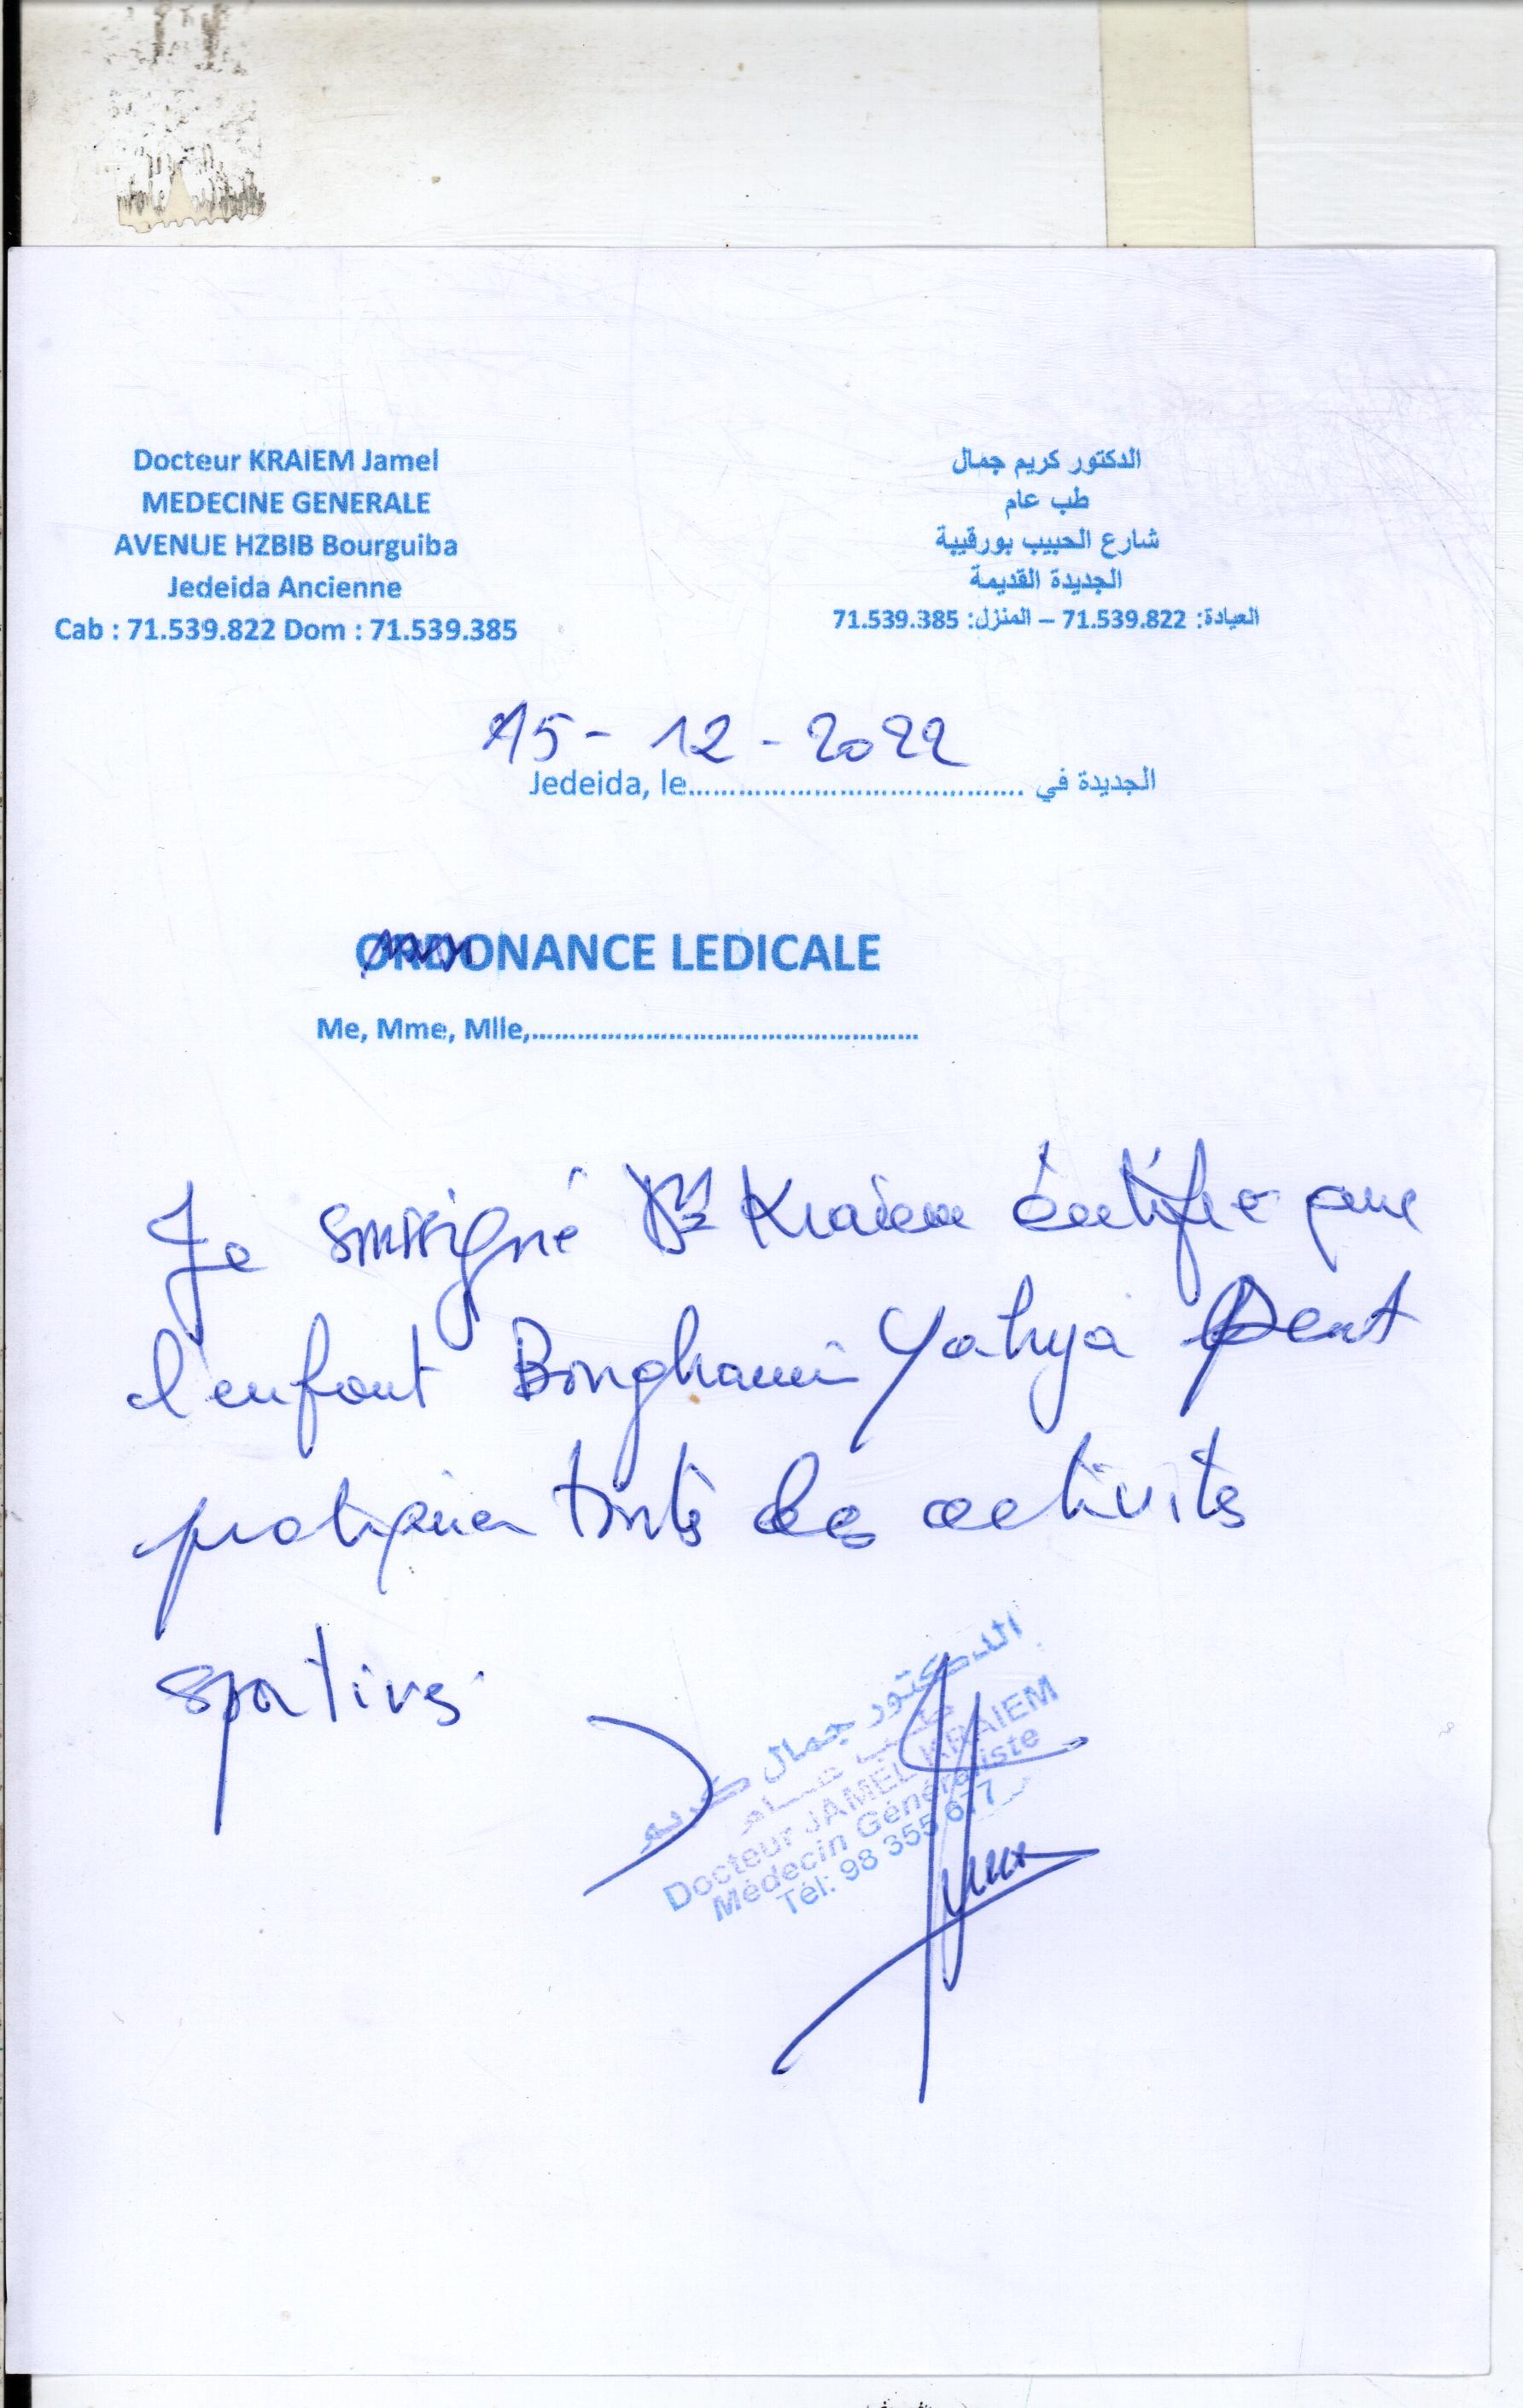 Docteur KRAIEM Jamel
MEDECINE GENERALE
AVENUE HZBIB Bourguiba
Jedeida Ancienne
Cab : 71.539.822 Dom : 71.539.385
الدكتور كريم جمال
طب عام
شارع الحبيب بورقيبة
الجديدة القديمة
العيادة: 71.539.822 – المنزل: 71.539.385
15 - 12 - 2022
Jedeida, le........................................ الجديدة في
ORDONANCE LEDICALE
Me, Mme, Mlle,....................................................
Je soussigné Dr Kraiem certifie que
l'enfant Yahya peut
pratiquer toutes les activités
sportives.
الدكتور جمال كريم
طب عام
Docteur JAMEL KRAIEM
Médecin Généraliste
Tél: 98 355 677